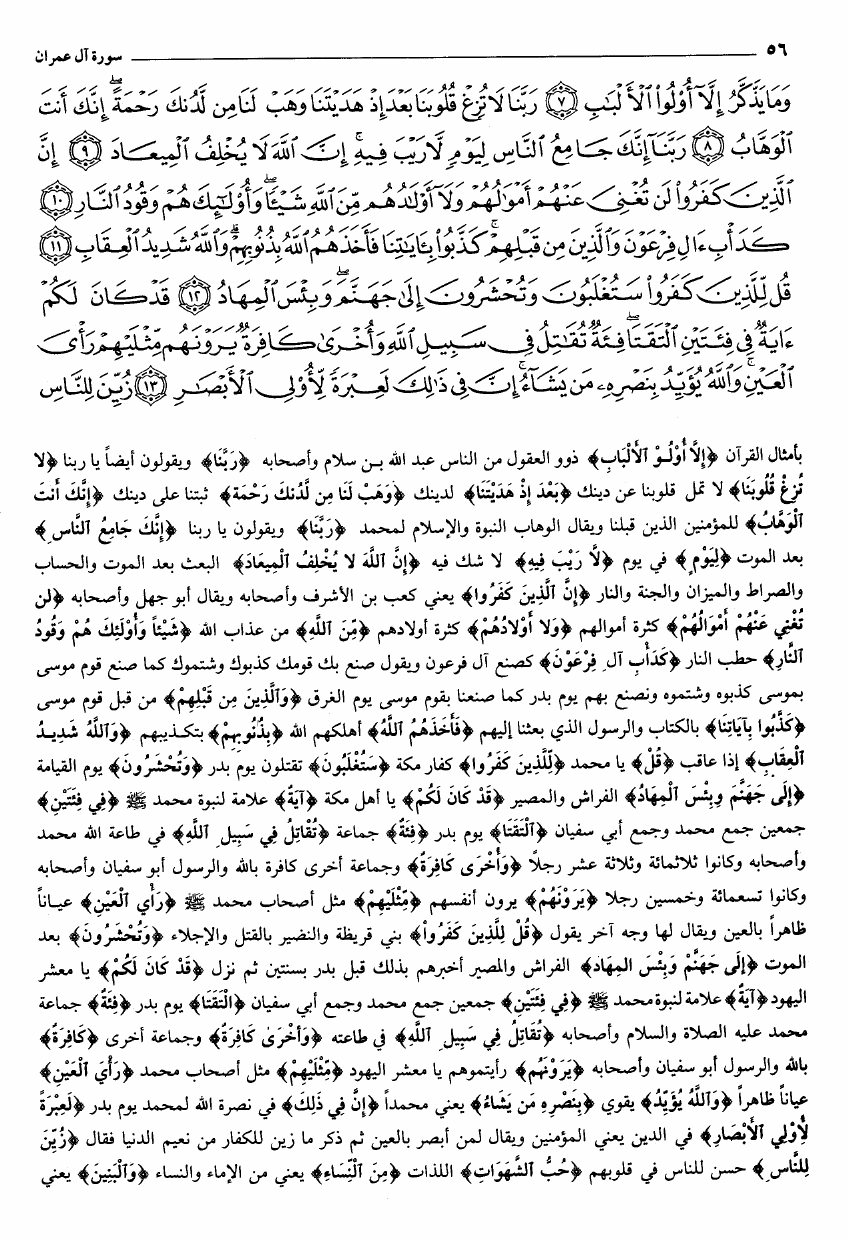 ٥٦ سورة آل عمران
وَمَا يَذَّكَّرُ إِلَّآ أُو۟لُوا۟ ٱلْأَلْبَٰبِ ﴿٧﴾ رَبَّنَا لَا تُزِغْ قُلُوبَنَا بَعْدَ إِذْ هَدَيْتَنَا وَهَبْ لَنَا مِن لَّدُنكَ رَحْمَةً ۚ إِنَّكَ أَنتَ
ٱلْوَهَّابُ ﴿٨﴾ رَبَّنَآ إِنَّكَ جَامِعُ ٱلنَّاسِ لِيَوْمٍ لَّا رَيْبَ فِيهِ ۚ إِنَّ ٱللَّهَ لَا يُخْلِفُ ٱلْمِيعَادَ ﴿٩﴾ إِنَّ
ٱلَّذِينَ كَفَرُوا۟ لَن تُغْنِىَ عَنْهُمْ أَمْوَٰلُهُمْ وَلَآ أَوْلَٰدُهُم مِّنَ ٱللَّهِ شَيْـًٔا ۖ وَأُو۟لَٰٓئِكَ هُمْ وَقُودُ ٱلنَّارِ ﴿١٠﴾
كَدَأْبِ ءَالِ فِرْعَوْنَ وَٱلَّذِينَ مِن قَبْلِهِمْ ۚ كَذَّبُوا۟ بِـَٔايَٰتِنَا فَأَخَذَهُمُ ٱللَّهُ بِذُنُوبِهِمْ ۗ وَٱللَّهُ شَدِيدُ ٱلْعِقَابِ ﴿١١﴾
قُل لِّلَّذِينَ كَفَرُوا۟ سَتُغْلَبُونَ وَتُحْشَرُونَ إِلَىٰ جَهَنَّمَ ۚ وَبِئْسَ ٱلْمِهَادُ ﴿١٢﴾ قَدْ كَانَ لَكُمْ
ءَايَةٌ فِى فِئَتَيْنِ ٱلْتَقَتَا ۖ فِئَةٌ تُقَٰتِلُ فِى سَبِيلِ ٱللَّهِ وَأُخْرَىٰ كَافِرَةٌ يَرَوْنَهُم مِّثْلَيْهِمْ رَأْىَ
ٱلْعَيْنِ ۚ وَٱللَّهُ يُؤَيِّدُ بِنَصْرِهِۦ مَن يَشَآءُ ۗ إِنَّ فِى ذَٰلِكَ لَعِبْرَةً لِّأُو۟لِى ٱلْأَبْصَٰرِ ﴿١٣﴾ زُيِّنَ لِلنَّاسِ
بأمثال القرآن ﴿إِلَّا أُوْلُوْ الْأَلْبَابِ﴾ ذوو العقول من الناس عبد الله بن سلام وأصحابه ﴿رَبَّنَا﴾ ويقولون أيضاً يا ربنا ﴿لا
تُزِغْ قُلُوبَنَا﴾ لا تمل قلوبنا عن دينك ﴿بَعْدَ إِذْ هَدَيْتَنَا﴾ لدينك ﴿وَهَبْ لَنَا مِن لَّدُنكَ رَحْمَةً﴾ ثبتنا على دينك ﴿إِنَّكَ أَنتَ
ٱلْوَهَّابُ﴾ للمؤمنين الذين قبلنا ويقال الوهاب النبوة والإسلام لمحمد ﴿رَبَّنَا﴾ ويقولون يا ربنا ﴿إِنَّكَ جَامِعُ ٱلنَّاسِ﴾
بعد الموت ﴿لِيَوْمٍ﴾ في يوم ﴿لَّا رَيْبَ فِيهِ﴾ لا شك فيه ﴿إِنَّ ٱللَّهَ لا يُخْلِفُ ٱلْمِيعَادَ﴾ البعث بعد الموت والحساب
والصراط والميزان والجنة والنار ﴿إِنَّ ٱلَّذِينَ كَفَرُوا﴾ يعني كعب بن الأشرف وأصحابه ويقال أبو جهل وأصحابه ﴿لَن
تُغْنِي عَنْهُمْ أَمْوَالُهُمْ﴾ كثرة أموالهم ﴿وَلا أَوْلادُهُمْ﴾ كثرة أولادهم ﴿مِّنَ ٱللَّهِ﴾ من عذاب الله ﴿شَيْئاً وَأُوْلَئِكَ هُمْ وَقُودُ
ٱلنَّارِ﴾ حطب النار ﴿كَدَأْبِ آلِ فِرْعَوْنَ﴾ كصنع آل فرعون ويقول صنع بك قومك كذبوك وشتموك كما صنع قوم موسى
بموسى كذبوه وشتموه ونصنع بهم يوم بدر كما صنعنا بقوم موسى يوم الغرق ﴿وَٱلَّذِينَ مِن قَبْلِهِمْ﴾ من قبل قوم موسى
﴿كَذَّبُوا بِآيَاتِنَا﴾ بالكتاب والرسول الذي بعثنا إليهم ﴿فَأَخَذَهُمُ ٱللَّهُ﴾ أهلكهم الله ﴿بِذُنُوبِهِمْ﴾ بتكذيبهم ﴿وَٱللَّهُ شَدِيدُ
ٱلْعِقَابِ﴾ إذا عاقب ﴿قُلْ﴾ يا محمد ﴿لِّلَّذِينَ كَفَرُوا﴾ كفار مكة ﴿سَتُغْلَبُونَ﴾ تقتلون يوم بدر ﴿وَتُحْشَرُونَ﴾ يوم القيامة
﴿إِلَى جَهَنَّمَ وَبِئْسَ ٱلْمِهَادُ﴾ الفراش والمصير ﴿قَدْ كَانَ لَكُمْ﴾ يا أهل مكة ﴿آيَةٌ﴾ علامة لنبوة محمد ﷺ ﴿فِي فِئَتَيْنِ﴾
جمعين جمع محمد وجمع أبي سفيان ﴿ٱلْتَقَتَا﴾ يوم بدر ﴿فِئَةٌ﴾ جماعة ﴿تُقْاتِلُ فِي سَبِيلِ ٱللَّهِ﴾ في طاعة الله محمد
وأصحابه وكانوا ثلاثمائة وثلاثة عشر رجلاً ﴿وَأُخْرَى كَافِرَةٌ﴾ وجماعة أخرى كافرة بالله والرسول أبو سفيان وأصحابه
وكانوا تسعمائة وخمسين رجلا ﴿يَرَوْنَهُمْ﴾ يرون أنفسهم ﴿مِّثْلَيْهِمْ﴾ مثل أصحاب محمد ﷺ ﴿رَأْيَ ٱلْعَيْنِ﴾ عياناً
ظاهراً بالعين ويقال لها وجه آخر يقول ﴿قُلْ لِلَّذِينَ كَفَرُواْ﴾ بني قريظة والنضير بالقتل والإجلاء ﴿وَتُحْشَرُونَ﴾ بعد
الموت ﴿إِلَى جَهَنَّمَ وَبِئْسَ المِهَاد﴾ الفراش والمصير أخبرهم بذلك قبل بدر بسنتين ثم نزل ﴿قَدْ كَانَ لَكُمْ﴾ يا معشر
اليهود ﴿آيَةٌ﴾ علامة لنبوة محمد ﷺ ﴿فِي فِئَتَيْنِ﴾ جمعين جمع محمد وجمع أبي سفيان ﴿الْتَقَتَا﴾ يوم بدر ﴿فِئَةٌ﴾ جماعة
محمد عليه الصلاة والسلام وأصحابه ﴿تُقَاتِلُ فِي سَبِيلِ ٱللَّهِ﴾ في طاعته ﴿وَأُخْرَى كَافِرَةٌ﴾ وجماعة أخرى ﴿كَافِرَةٌ﴾
بالله والرسول أبو سفيان وأصحابه ﴿يَرَوْنَهُم﴾ رأيتموهم يا معشر اليهود ﴿مِّثْلَيْهِمْ﴾ مثل أصحاب محمد ﴿رَأْيَ ٱلْعَيْنِ﴾
عياناً ظاهراً ﴿وَٱللَّهُ يُؤَيِّدُ﴾ يقوي ﴿بِنَصْرِهِ مَن يَشَاءُ﴾ يعني محمداً ﴿إِنَّ فِي ذَلِكَ﴾ في نصرة الله لمحمد يوم بدر ﴿لَعِبْرَةً
لِأُوْلِي ٱلْأَبْصَارِ﴾ في الدين يعني المؤمنين ويقال لمن أبصر بالعين ثم ذكر ما زين للكفار من نعيم الدنيا فقال ﴿زُيِّنَ
لِلنَّاسِ﴾ حسن للناس في قلوبهم ﴿حُبُّ ٱلشَّهَوَاتِ﴾ اللذات ﴿مِنَ ٱلنِّسَاءِ﴾ يعني من الإماء والنساء ﴿وَٱلْبَنِينَ﴾ يعني